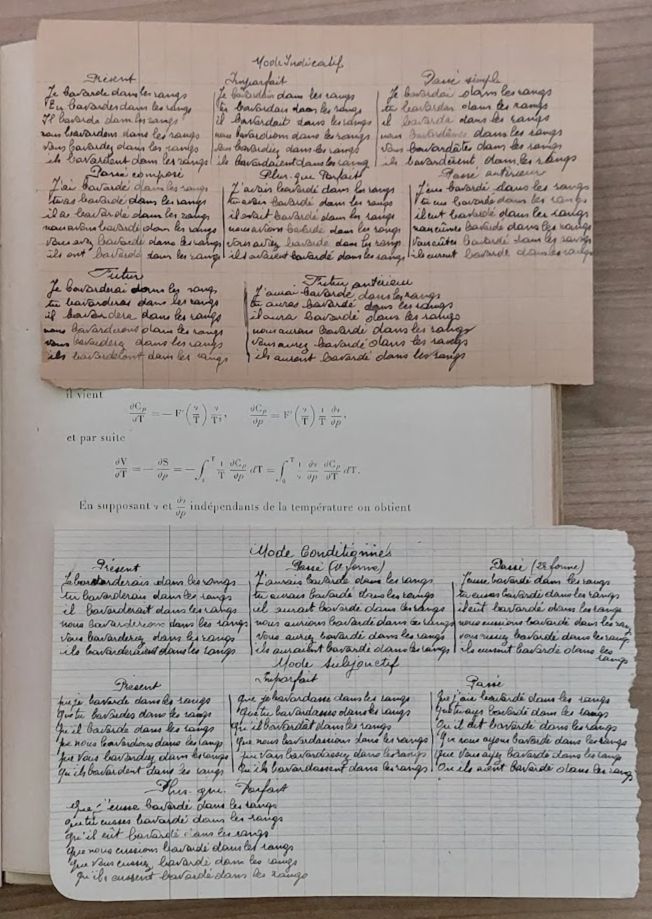 Mode Indicatif
Présent
Je bavarde dans les rangs
Tu bavardes dans les rangs
Il bavarde dans les rangs
nous bavardons dans les rangs
Vous bavardez dans les rangs
ils bavardent dans les rangs
Imparfait
Je bavardais dans les rangs
tu bavardais dans les rangs
il bavardait dans les rangs
nous bavardions dans les rangs
vous bavardiez dans les rangs
ils bavardaient dans les rang
Passé simple
Je bavardai dans les rangs
tu bavardas dans les rangs
il bavarda dans les rangs
nous bavardâmes dans les rangs
vous bavardâtes dans les rangs
ils bavardèrent dans les rangs
Passé composé
J'ai bavardé dans les rangs
tu as bavardé dans les rangs
il a bavardé dans les rang
nous avons bavardé dans les rang
vous avez bavardé dans les rangs
ils ont bavardé dans les rangs
Plus-que Parfait
J'avais bavardé dans les rangs
tu avais bavardé dans les rangs
il avait bavardé dans les rangs
nous avions bavardé dans les rang
vous aviez bavardé dans les rangs
ils avaient bavardé dans les rangs
Passé antérieur
J'eus bavardé dans les rangs
Tu eus bavardé dans les rangs
il eut bavardé dans les rangs
nous eûmes bavardé dans les rangs
Vous eûtes bavardé dans les rangs
ils eurent bavardé dans les rangs
Futur
Je bavarderai dans les rangs
tu bavarderas dans les rangs
il bavardera dans les rangs
nous bavarderons dans les rangs
vous bavarderez dans les rangs
ils bavarderont dans les rangs
Futur antérieur
J'aurai bavardé dans les rangs
tu auras bavardé dans les rangs
il aura bavardé dans les rangs
nous aurons bavardé dans les rangs
vous aurez bavardé dans les rangs
ils auront bavardé dans les rangs
il vient
∂Cp/∂T = — F'(ν/T) ν/T², ∂Cp/∂p = F'(ν/T) 1/T ∂ν/∂p,
et par suite
∂V/∂T = — ∂S/∂p = — ∫ᵀ 1/T ∂Cp/∂p dT = ∫₀ᵀ 1/ν ∂ν/∂p ∂Cp/∂T dT.
En supposant ν et ∂ν/∂p indépendants de la température on obtient
Mode Conditionnel
Présent
Je bavarderais dans les rangs
tu bavarderais dans les rangs
il bavarderait dans les rangs
nous bavarderions dans les rangs
Vous bavarderiez dans les rangs
ils bavarderaient dans les rangs
Passé (1e forme)
J'aurais bavardé dans les rangs
tu aurais bavardé dans les rangs
il aurait bavardé dans les rangs
nous aurions bavardé dans les rangs
vous auriez bavardé dans les rangs
ils auraient bavardé dans les rangs
Passé (2e forme)
J'eusse bavardé dans les rangs
tu eusses bavardé dans les rangs
il eût bavardé dans les rangs
nous eussions bavardé dans les rang
vous eussiez bavardé dans les rang
ils eussent bavardé dans les
rangs
Mode subjonctif
Présent
que je bavarde dans les rangs
Que tu bavardes dans les rangs
Qu'il bavarde dans les rang
que nous bavardions dans les rangs
que vous bavardiez dans les rangs
Qu'ils bavardent dans les rangs
Imparfait
Que je bavardasse dans les rangs
Que tu bavardasses dans les rangs
Qu'il bavardât dans les rangs
Que nous bavardassions dans les rangs
que vous bavardassiez dans les rangs
Qu'ils bavardassent dans les rangs
Passé
Que j'aie bavardé dans les rangs
Que tu ayes bavardé dans les rangs
Qu'il ait bavardé dans les rangs
Que nous ayons bavardé dans les rangs
Que vous ayez bavardé dans les rangs
Qu'ils aient bavardé dans les rang
Plus-que-Parfait
Que j'eusse bavardé dans les rangs
Que tu eusses bavardé dans les rangs
Qu'il eût bavardé dans les rangs
Que nous eussions bavardé dans les rangs
Que vous eussiez bavardé dans les rangs
Qu'ils eussent bavardé dans les rangs